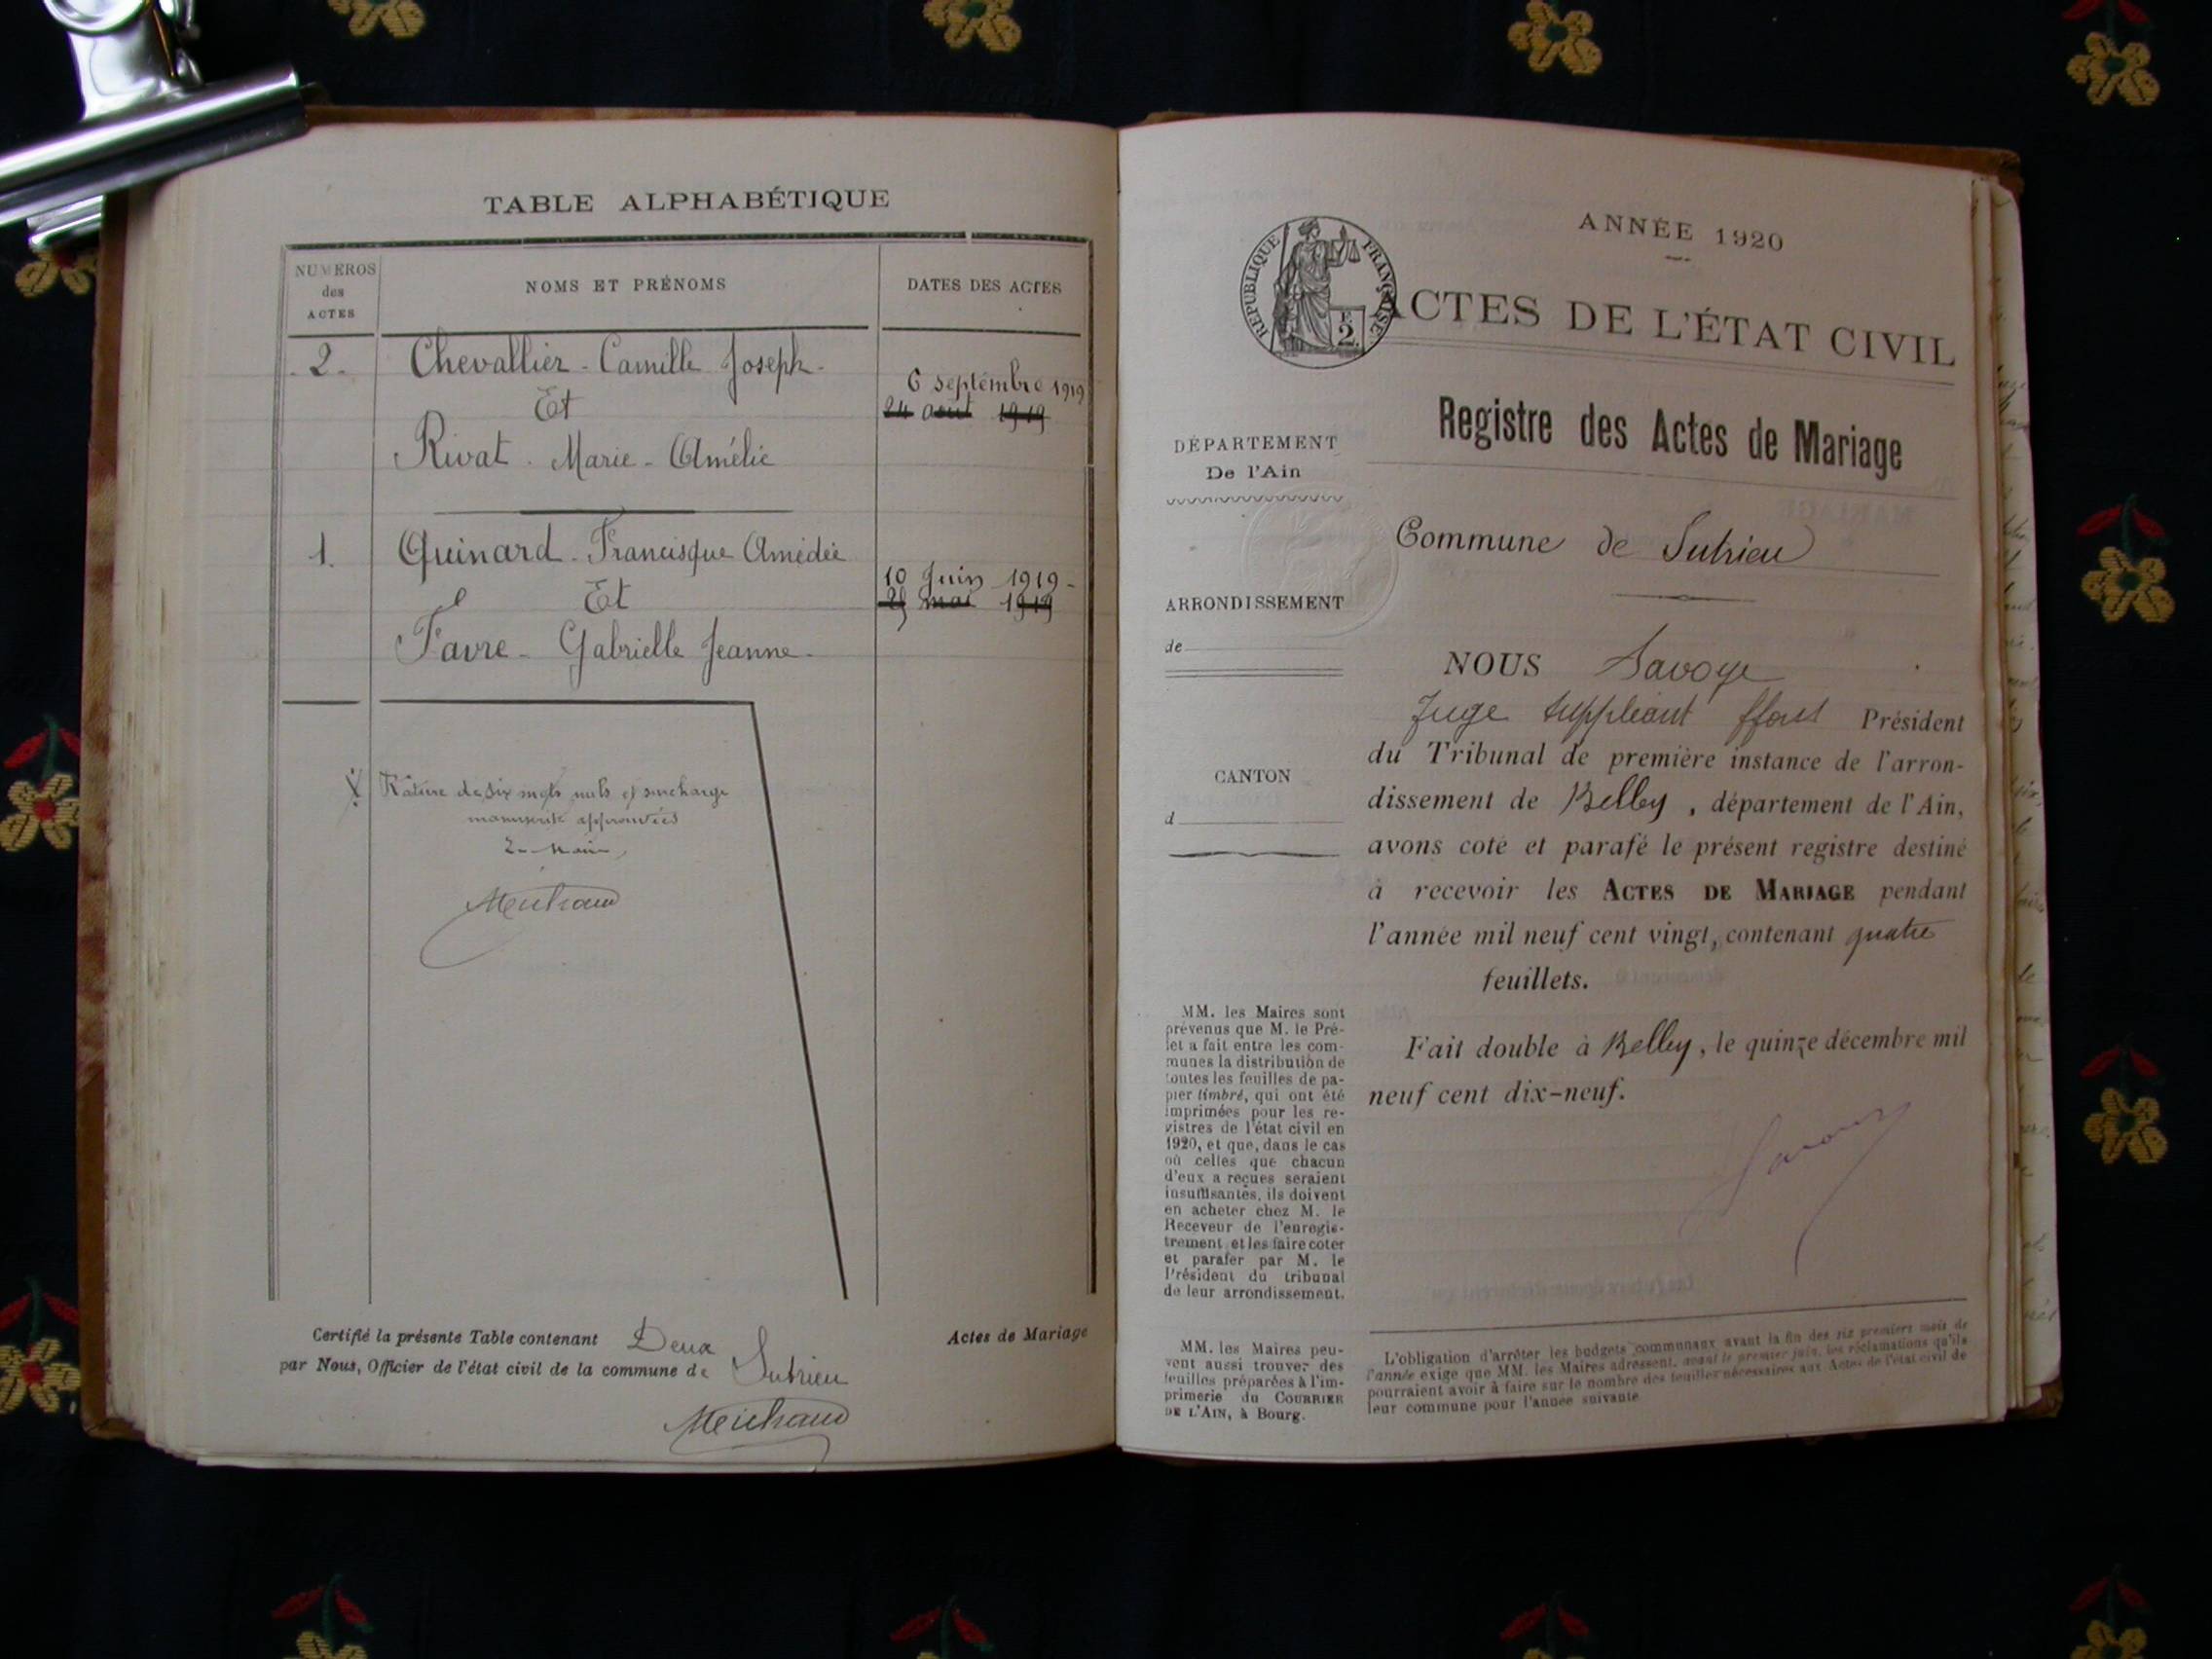 TABLE ALPHABÉTIQUE
NUMÉROS
des
ACTES
NOMS ET PRÉNOMS
DATES DES ACTES
2. Chevallier - Camille Joseph -
6 septembre 1919
Et
24 août 1919
Rivat - Marie - Amélie
1. Quinard - Francisque Amédée
10 Juin 1919 -
Et
25 mai 1919
Favre - Gabrielle Jeanne -
Rature de six mots nuls et surcharge
manuscrite approuvées
Le Maire
Certifié la présente Table contenant Deux Actes de Mariage
par Nous, Officier de l'état civil de la commune de Sutrieu
ANNÉE 1920
REPUBLIQUE FRANÇAISE
2
ACTES DE L'ÉTAT CIVIL
Registre des Actes de Mariage
DÉPARTEMENT
De l'Ain
Commune de Sutrieu
ARRONDISSEMENT
de
CANTON
d
NOUS Savoye
Juge suppléant ffons Président
du Tribunal de première instance de l'arron-
dissement de Belley, département de l'Ain,
avons coté et parafé le présent registre destiné
à recevoir les ACTES DE MARIAGE pendant
l'année mil neuf cent vingt, contenant quatre
feuillets.
Fait double à Belley, le quinze décembre mil
neuf cent dix-neuf.
MM. les Maires sont
prévenus que M. le Pré-
fet a fait entre les com-
munes la distribution de
toutes les feuilles de pa-
pier timbré, qui ont été
imprimées pour les re-
gistres de l'état civil en
1920, et que, dans le cas
où celles que chacun
d'eux a reçues seraient
insuffisantes, ils doivent
en acheter chez M. le
Receveur de l'enregis-
trement et les faire coter
et parafer par M. le
Président du tribunal
de leur arrondissement.
MM. les Maires peu-
vent aussi trouver des
feuilles préparées à l'im-
primerie du COURRIER
DE L'AIN, à Bourg.
L'obligation d'arrêter les budgets communaux avant la fin des six premiers mois de
l'année exige que MM. les Maires adressent, avant le premier juin, les réclamations qu'ils
pourraient avoir à faire sur le nombre des feuilles nécessaires aux Actes de l'état civil de
leur commune pour l'année suivante